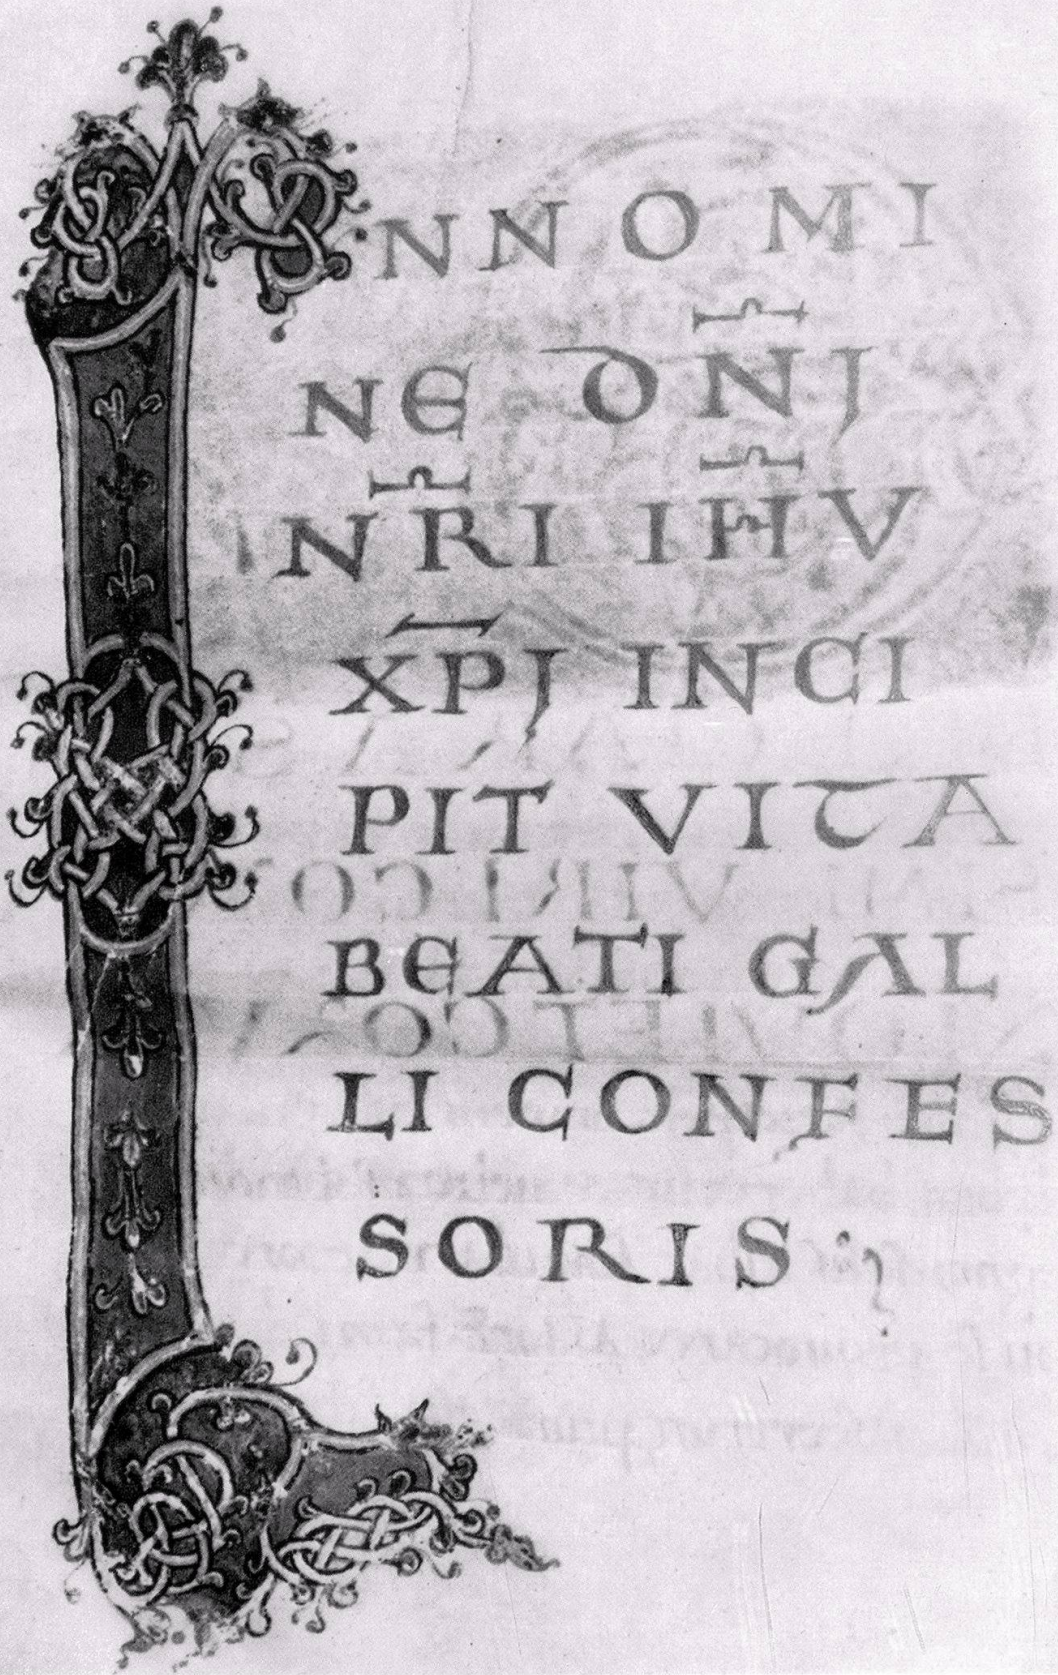 IN NOMI
NE DN̄I
NR̄I IH̄U
XP̄I INCI
PIT VITA
BEATI GAL
LI CONFES
SORIS